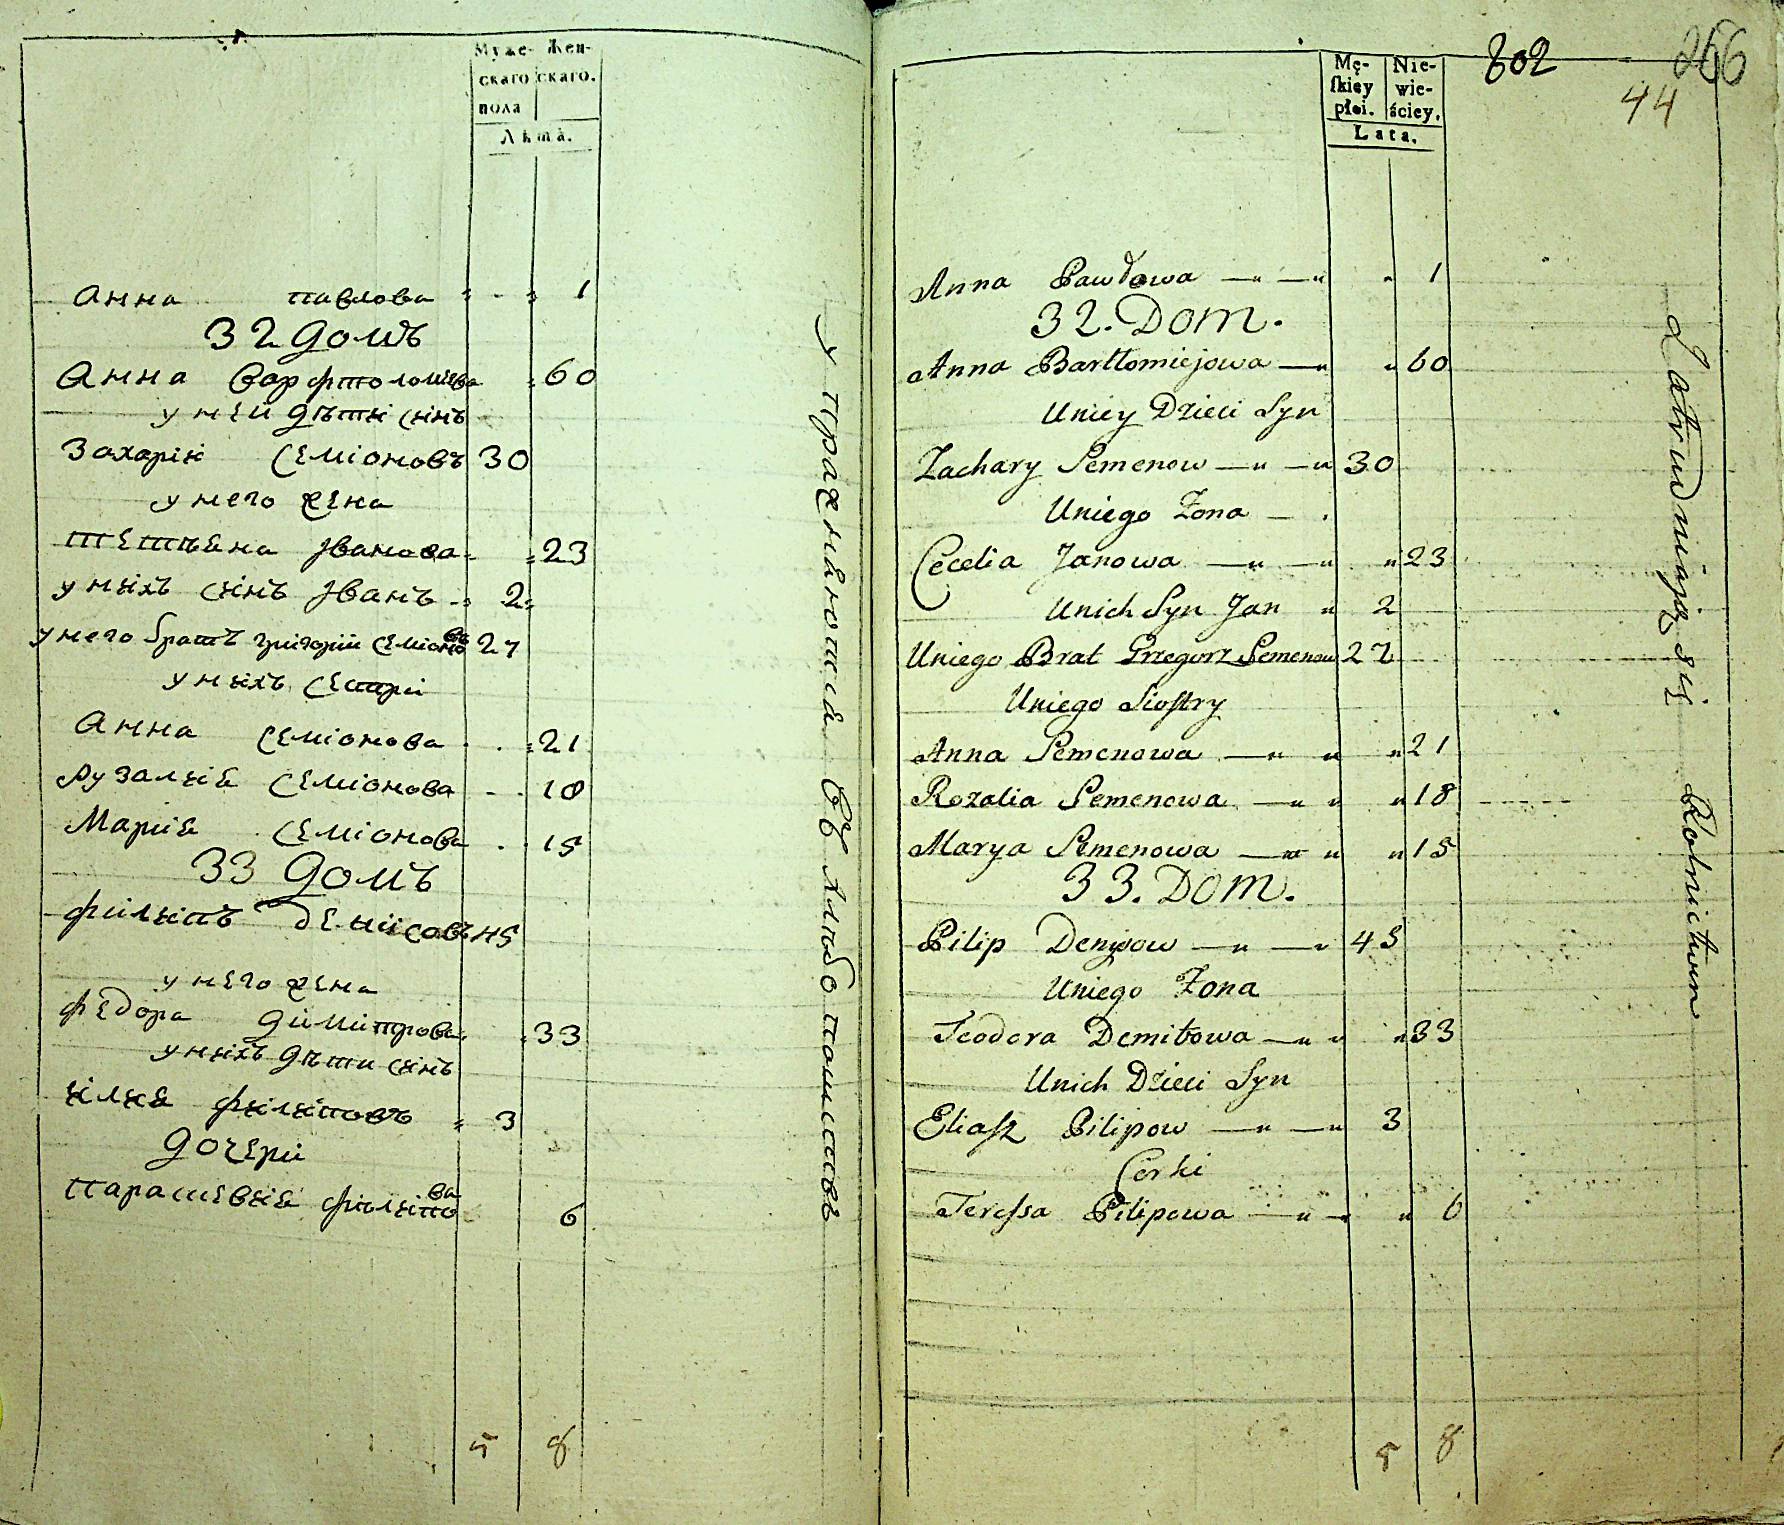 Муже- Жен-
скаго скаго.
пола
Лѣта.
Анна павлова 1
32 домъ
Анна варфтоломѣева 60
у ней дѣти синъ
Захарій Семіоновъ 30
у него жена
Івановa 23
у нихъ синъ Іванъ 2
у него братъ григорій Семіоновъ 27
у нихъ Сестри
Анна Семіонова 21
Рузалия Семіонова 18
Мария Семіонова 15
33 домъ
филипъ Денисовъ 45
у него жена
федора димитрова 33
у нихъ дѣти синъ
илия филиповъ 3
дочери
параскевия филипова 6
5 8
упражняются въ хлѣбопашествѣ
802
266
44
Mę- Nie-
skiey wie-
płci. ściey.
Lata.
Anna Pawłowa 1
32. Dom.
Anna Bartłomiejowa 60
Uniey Dzieci Syn
Zachary Semenow 30
Uniego Żona
Cecelia Janowa 23
Unich Syn Jan 2
Uniego Brat Grzegorz Semenow 27
Uniego Siostry
Anna Semenowa 21
Rozalia Semenowa 18
Marya Semenowa 15
33. Dom.
Pilip Denisow 45
Uniego Żona
Teodora Demitowa 33
Unich Dzieci Syn
Eliasz Pilipow 3
Corki
Teressa Pilipowa 6
5 8
Zatrudniają się Rolnictwem